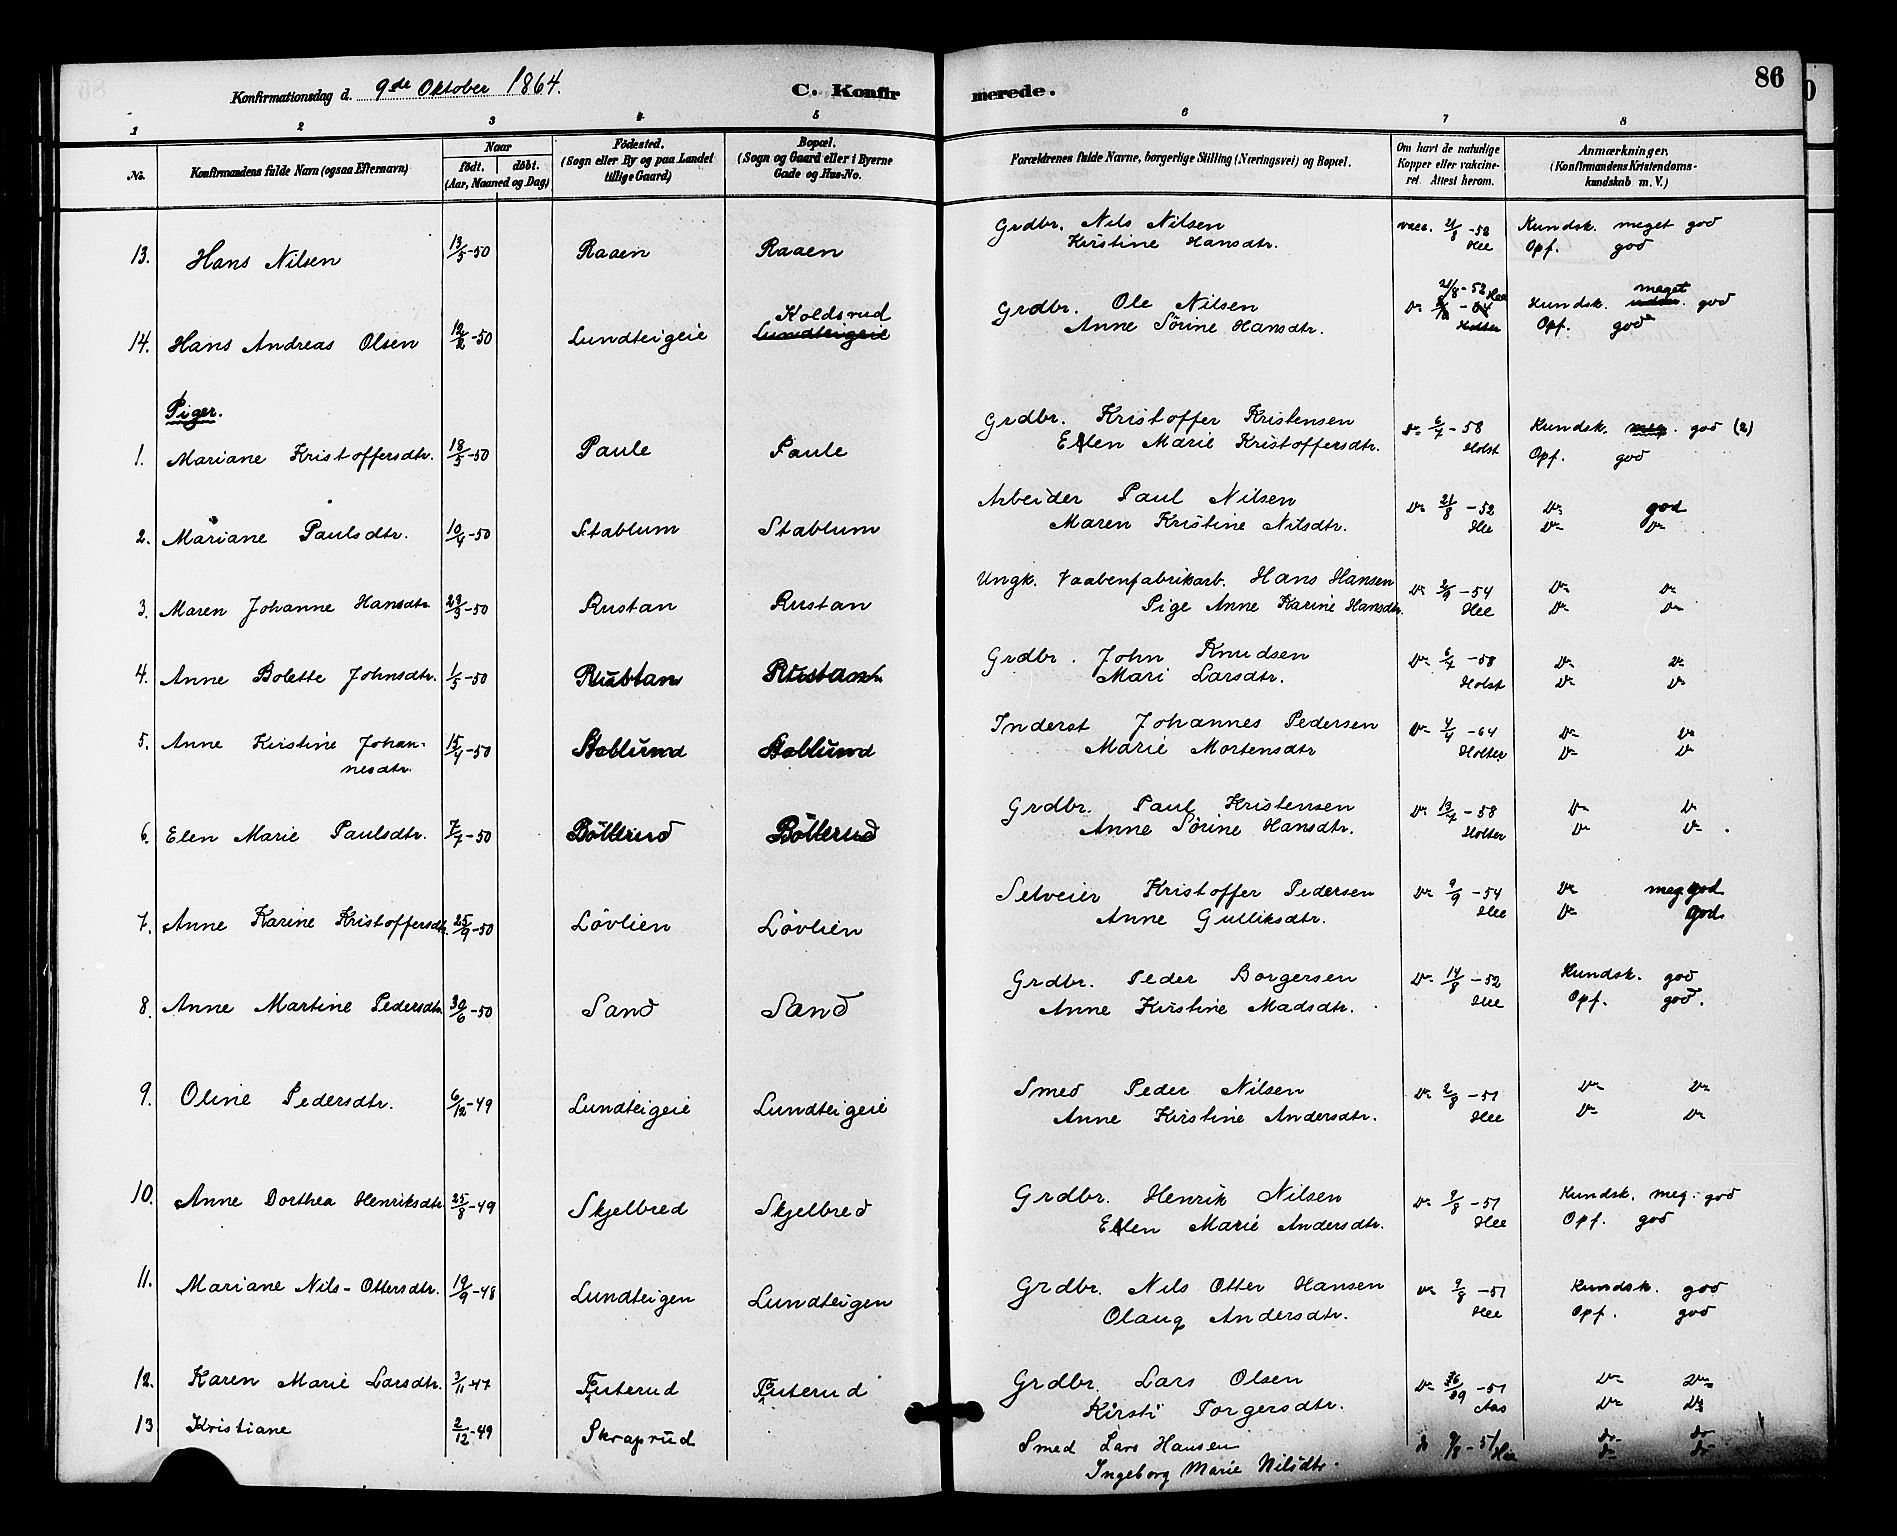 86
Konfirmationsdag d. 9de Oktober 1864.
C. Konfirmerede.
1 2 3 4 5 6 7 8
No.
Konfirmandens fulde Navn (ogsaa Efternavn)
Naar
født. døbt.
(Aar, Maaned og Dag)
Fødested.
(Sogn eller By og paa Landet
tillige Gaard)
Bopæl.
(Sogn og Gaard eller i Byerne
Gade og Hus-No.
Forældrenes fulde Navne, borgerlige Stilling (Næringsvei) og Bopæl.
Om havt de naturlige
Kopper eller vakcine-
ret. Attest herom.
Anmærkninger.
(Konfirmandens Kristendoms-
kundskab m. V.)
13. Hans Nilsen 13/5-50 Raaen Raaen Grdbr. Nils Nilsen vacc. 21/8-52 Kundsk. meget god
Kristine Hansdtr. Hee Opf. god
14. Hans Andreas Olsen 12/2-50 Lundteigeie Koldsrud Lundteigeie Grdbr. Ole Nilsen 21/8-52 Hee Kundsk. meget god
Anne Sørine Hansdtr. Holter Opf. god
Piger.
1. Mariane Kristoffersdtr. 18/5-50 Paule Paule Grdbr. Kristoffer Kristensen D- 6/7-58 Kundsk. meg. god (2)
Ellen Marie Kristoffersdtr. Holst Opf. god
2. Mariane Paulsdtr. 10/4-50 Stablum Stablum Arbeider Paul Nilsen D- 21/8-52 D- god
Maren Kristine Nilsdtr. Hee D- D-
3. Maren Johanne Hansdtr 29/3-50 Rustan Rustan Ungk. Vaabenfabrikarb. Hans Hansen D- 2/9-54 D- D-
Pige Anne Karine Hansdtr. Hee D- D-
4. Anne Bolette Johnsdtr. 1/5-50 Rustan Rustan Grdbr. John Knudsen D- 6/7-58 D- D-
Mari Larsdtr. Holst D- D-
5. Anne Kristine Johan-
nesdtr. 15/4-50 Stablund Stablund Inderst Johannes Pedersen D- 4/4-64 D- D-
Marie Mortensdtr Holter D- D-
6. Elen Marie Paulsdtr. 7/7-50 Böllerud Böllerud Grdbr. Paul Kristensen D- 13/7-58 D- D-
Anne Sørine Hansdtr. Holter D- D-
7. Anne Karine Kristoffersdtr. 25/9-50 Løvlien Løvlien Selveier Kristoffer Pedersen D- 9/9-54 D- meg. god
Anne Gulliksdtr. Hee D- god
8. Anne Martine Pedersdtr. 30/6-50 Sand Sand Grdbr. Peder Borgersen D- 14/8-52 Kundsk. god
Anne Kristine Madsdtr. Hee Opf. god.
9. Oline Pedersdtr. 6/12-49 Lundteigeie Lundteigeie Smed Peder Nilsen D- 2/8-51 D- D-
Anne Kristine Andersdtr. Hee D- D-
10. Anne Dorthea Henriksdtr. 25/8-49 Skjelbred Skjelbred Grdbr. Henrik Nilsen D- 9/8-51 Kundsk. meg. god
Ellen Marie Andersdtr. Hee Opf. god
11. Mariane Nils-Ottersdtr. 19/9-48 Lundteigen Lundteigen Grdbr. Nils Otter Hansen D- 9/8-51 Kundsk. god
Olaug Andersdtr. Hee Opf. god
12. Karen Marie Larsdtr. 3/11-47 Futerud Futerud Grdbr. Lars Olsen D- -51 D- D-
Kirsti Torgersdtr. Aas D- D-
13 Kristiane 2/12-49 Skraprud Smed Lars Hansen do 9/8-51 Hee do do
Ingeborg Marie Nilsdtr. do do